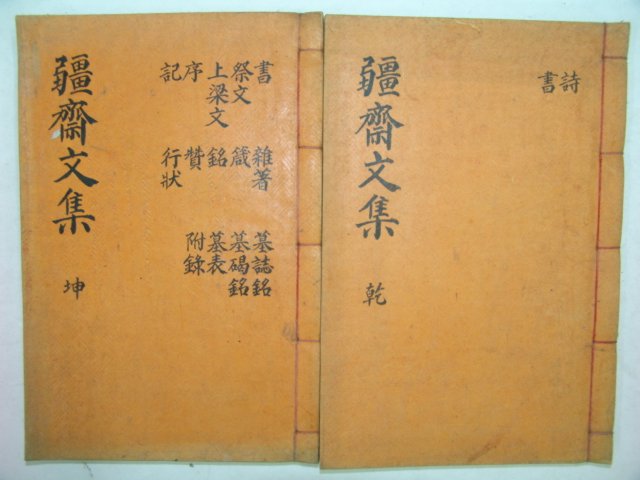 詩
書
彊齋文集 乾
書 雜著 墓誌銘
祭文 箴 墓碣銘
上梁文 銘 墓表
序 贊 附錄
記 行狀
彊齋文集 坤